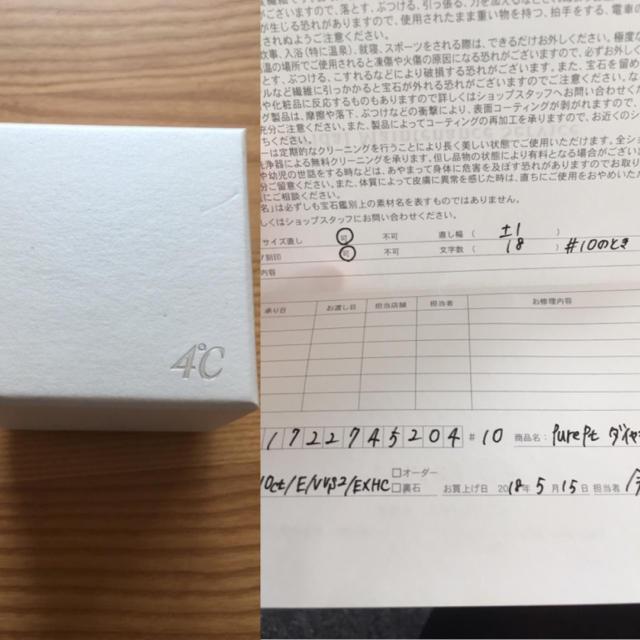 4℃
がございますので、落とす、ぶつける、引っ張る、力を加えるなど
が生じる恐れがありますので、使用されたまま重い物を持つ、拍手をする、電車の
されぬようご注意ください。
炊事、入浴(特に温泉)、就寝、スポーツをされる際は、できるだけお外しください。極度な
温の場所でご使用されると凍傷や火傷の原因になる恐れがございますので、必ずお外しく
とす、ぶつける、こすれるなどにより破損する恐れがございます。また、宝石を留め
ルなど繊維に引っかかると宝石が外れる恐れがございますのでご注意ください。な
や化粧品に反応するものもありますので詳しくはショップスタッフへお問い合わせ
グ製品は、摩擦や落下、ぶつけなどの衝撃により、表面コーティングが剥がれますので、
充分ご注意ください。また、製品によってコーティングの再加工を承りますので、お近くのシ
ちください。
ーは定期的なクリーニングを行うことにより長く美しい状態でご使用いただけます。全ショ
洗浄器による無料クリーニングを承ります。但し品物の状態により有料となる場合がござい
や幼児の世話をする時などは、あやまって身体に危害を及ぼす恐れがありますのでお取り
分ご留意ください。また、体質によって皮膚に異常を感じた時は、直ちにご使用をおやめいただ
にご相談ください。
名」は必ずしも宝石鑑別上の素材名を表すものではありません。
しくはショップスタッフにお問い合わせください。
サイズ直し 可 不可 直し幅 ( ±1 )
刻印 可 不可 文字数 ( 18 ) #10のとき
内容
承り日 お渡し日 担当店舗 担当者 お修理内容
1722745204 # 10 商品名: PurePt ダイヤ
0ct/E/VVS2/EXHC □オーダー
□裏石 お買上げ日 2018年5月15日 担当者